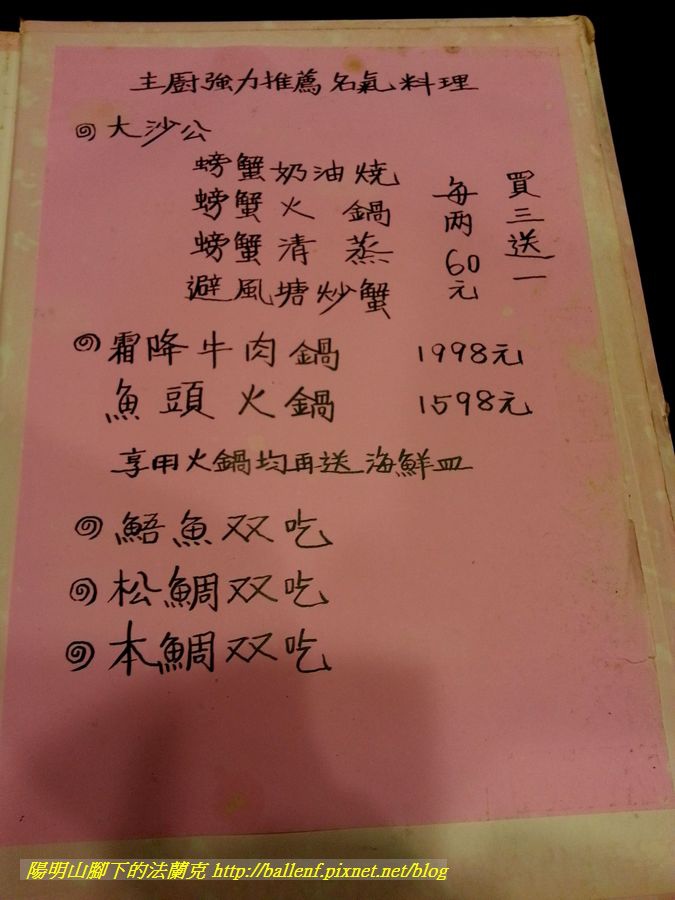 主廚強力推薦名氣料理
大沙公
螃蟹奶油燒
螃蟹火鍋
螃蟹清蒸
避風塘炒蟹
每两60元
買三送一
霜降牛肉鍋 1998元
魚頭火鍋 1598元
享用火鍋均再送海鮮皿
鯃魚双吃
松鯛双吃
本鯛双吃
陽明山腳下的法蘭克 http://ballenf.pixnet.net/blog